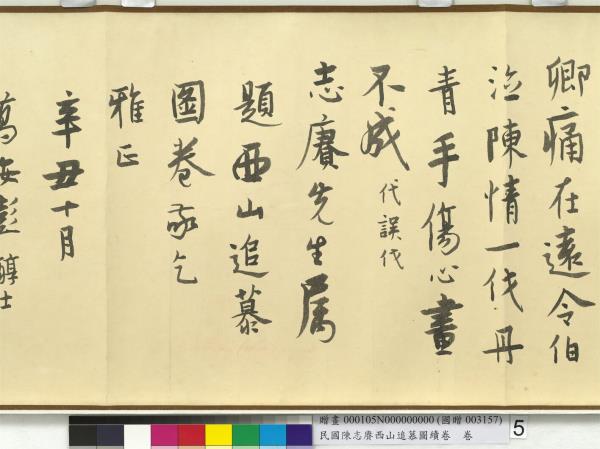 卿痛在遠令伯
泣陳情一伐丹
青手傷心畫
不成 代誤伐
志賡先生属
題西山追慕
圖卷敬乞
雅正
辛丑十月
萬安彭醇士
贈畫 000105N000000000 (國贈 003157)
民國陳志賡西山追慕圖續卷 卷
5